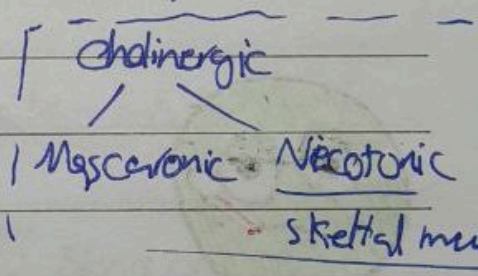 Cholinergic
Mascaronic Nicotonic
Skeltal mu